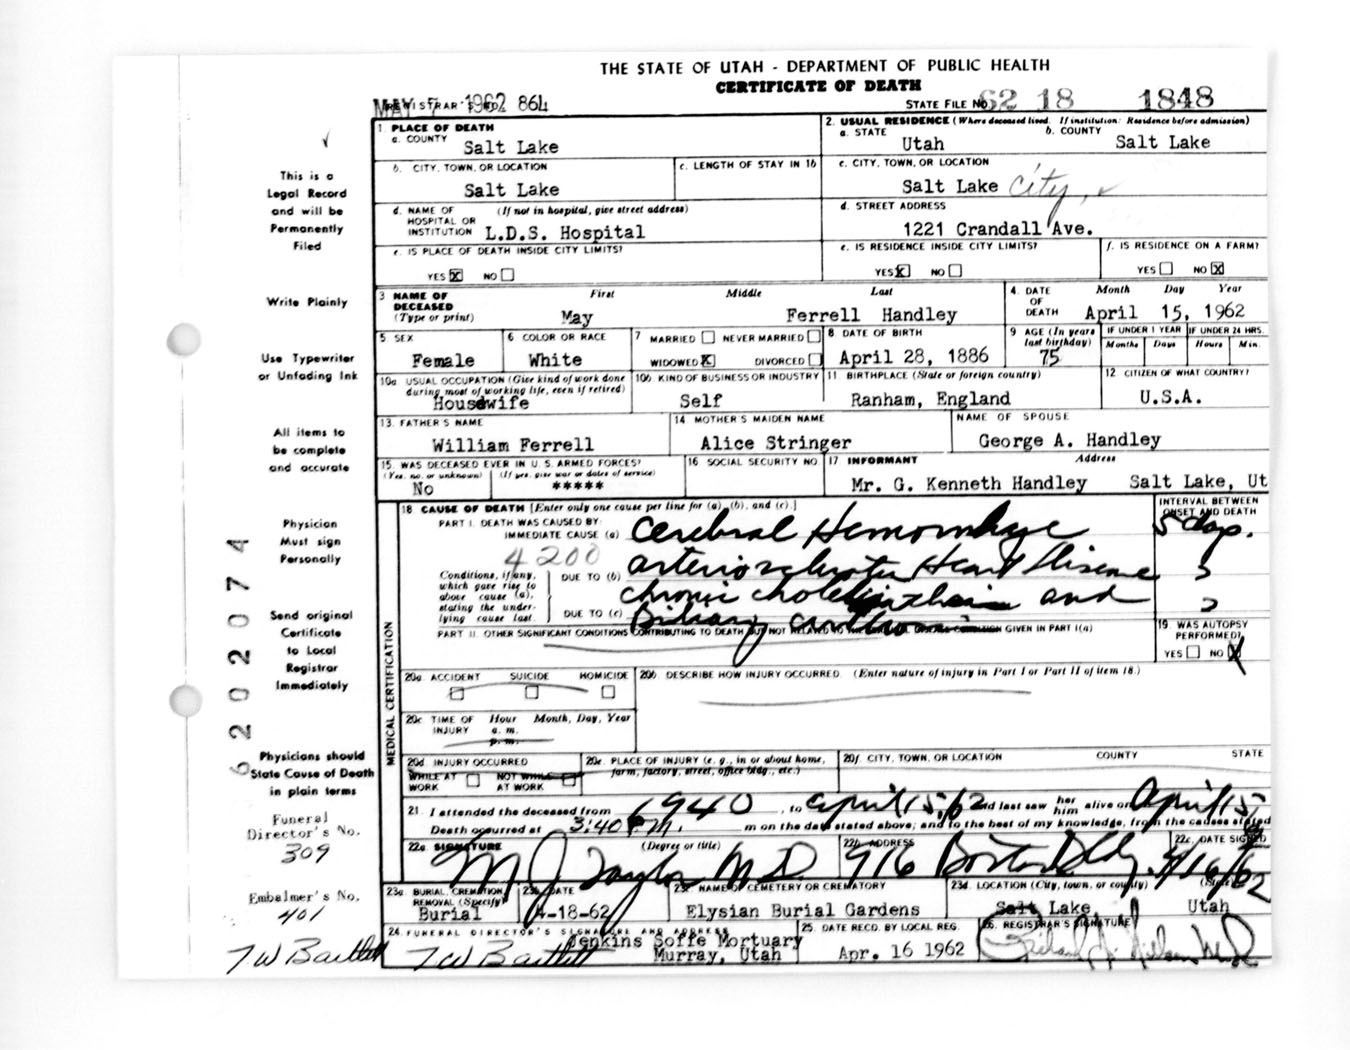 THE STATE OF UTAH - DEPARTMENT OF PUBLIC HEALTH
CERTIFICATE OF DEATH
MAY 7 1962 864
STATE FILE NO. 62 18 1848
1. PLACE OF DEATH
a. COUNTY Salt Lake
2. USUAL RESIDENCE (Where deceased lived. If institution: Residence before admission)
a. STATE Utah b. COUNTY Salt Lake
b. CITY, TOWN, OR LOCATION Salt Lake
c. LENGTH OF STAY IN 1b
c. CITY, TOWN, OR LOCATION Salt Lake City,
d. NAME OF HOSPITAL OR INSTITUTION (If not in hospital, give street address) L.D.S. Hospital
d. STREET ADDRESS 1221 Crandall Ave.
e. IS PLACE OF DEATH INSIDE CITY LIMITS? YES X NO
e. IS RESIDENCE INSIDE CITY LIMITS? YES X NO
f. IS RESIDENCE ON A FARM? YES NO X
3 NAME OF DECEASED (Type or print) First Middle Last
May Ferrell Handley
4. DATE OF DEATH Month Day Year
April 15, 1962
5 SEX Female
6 COLOR OR RACE White
7 MARRIED NEVER MARRIED WIDOWED X DIVORCED
8 DATE OF BIRTH April 28, 1886
9 AGE (In years last birthday) 75
IF UNDER 1 YEAR Months Days
IF UNDER 24 HRS. Hours Min.
10a USUAL OCCUPATION (Give kind of work done during most of working life, even if retired) Housewife
10b. KIND OF BUSINESS OR INDUSTRY Self
11 BIRTHPLACE (State or foreign country) Ranham, England
12 CITIZEN OF WHAT COUNTRY? U.S.A.
13. FATHER'S NAME William Ferrell
14 MOTHER'S MAIDEN NAME Alice Stringer
NAME OF SPOUSE George A. Handley
15. WAS DECEASED EVER IN U.S. ARMED FORCES? (Yes, no, or unknown) (If yes, give war or dates of service) No *****
16 SOCIAL SECURITY NO.
17 INFORMANT Address
Mr. G. Kenneth Handley Salt Lake, Ut
18 CAUSE OF DEATH [Enter only one cause per line for (a), (b), and (c).]
INTERVAL BETWEEN ONSET AND DEATH
PART I. DEATH WAS CAUSED BY:
IMMEDIATE CAUSE (a) Cerebral Hemorrhage 5 days.
4200
Conditions, if any, which gave rise to above cause (a), stating the underlying cause last.
DUE TO (b) arteriosclerotic Heart Disease ?
DUE TO (c) chronic and Biliary ?
PART II. OTHER SIGNIFICANT CONDITIONS CONTRIBUTING TO DEATH BUT NOT RELATED TO THE TERMINAL DISEASE CONDITION GIVEN IN PART I(a)
19. WAS AUTOPSY PERFORMED? YES NO X
MEDICAL CERTIFICATION
20a ACCIDENT SUICIDE HOMICIDE
20b. DESCRIBE HOW INJURY OCCURRED. (Enter nature of injury in Part I or Part II of item 18.)
20c TIME OF INJURY Hour Month, Day, Year
a. m.
p. m.
20d INJURY OCCURRED
WHILE AT WORK NOT WHILE AT WORK
20e. PLACE OF INJURY (e. g., in or about home, farm, factory, street, office bldg., etc.)
20f. CITY, TOWN, OR LOCATION COUNTY STATE
21. I attended the deceased from 1940, to April 15, 62 and last saw her him alive on April 15,
Death occurred at 3:40 P.M. m on the date stated above; and to the best of my knowledge, from the causes stated
22a SIGNATURE (Degree or title) M J Taylor M.D.
22b ADDRESS 916 Boston Bldg.
22c. DATE SIGNED 4/16/62
23a BURIAL, CREMATION REMOVAL (Specify) Burial
23b DATE 4-18-62
23c NAME OF CEMETERY OR CREMATORY Elysian Burial Gardens
23d. LOCATION (City, town, or county) (State) Salt Lake, Utah
24. FUNERAL DIRECTOR'S SIGNATURE AND ADDRESS
Jenkins Soffe Mortuary
Murray, Utah
T W Bartlett
25. DATE RECD. BY LOCAL REG. Apr. 16 1962
26. REGISTRAR'S SIGNATURE
This is a
Legal Record
and will be
Permanently
Filed
Write Plainly
Use Typewriter
or Unfading Ink
All items to
be complete
and accurate
Physician
Must sign
Personally
Send original
Certificate
to Local
Registrar
Immediately
Physicians should
State Cause of Death
in plain terms
Funeral
Director's No.
309
Embalmer's No.
401
T W Bartlett
62 02074